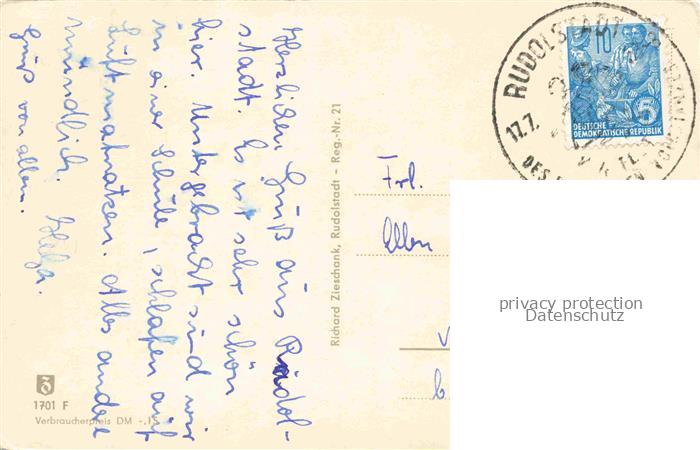 Herzlichen Gruß aus Rudol-
stadt. Es ist sehr schön
hier. Untergebracht sind wir
in einer Schule, schlafen auf
Luftmatratzen. Alles andere
mündlich. Helga.
Gruß von allem.
Richard Zieschank, Rudolstadt - Reg.-Nr. 21
1701 F
Verbraucherpreis DM -,15
RUDOLSTADT
17.7.
10
5
DEUTSCHE
DEMOKRATISCHE REPUBLIK
Frl.
Ellen
privacy protection
Datenschutz